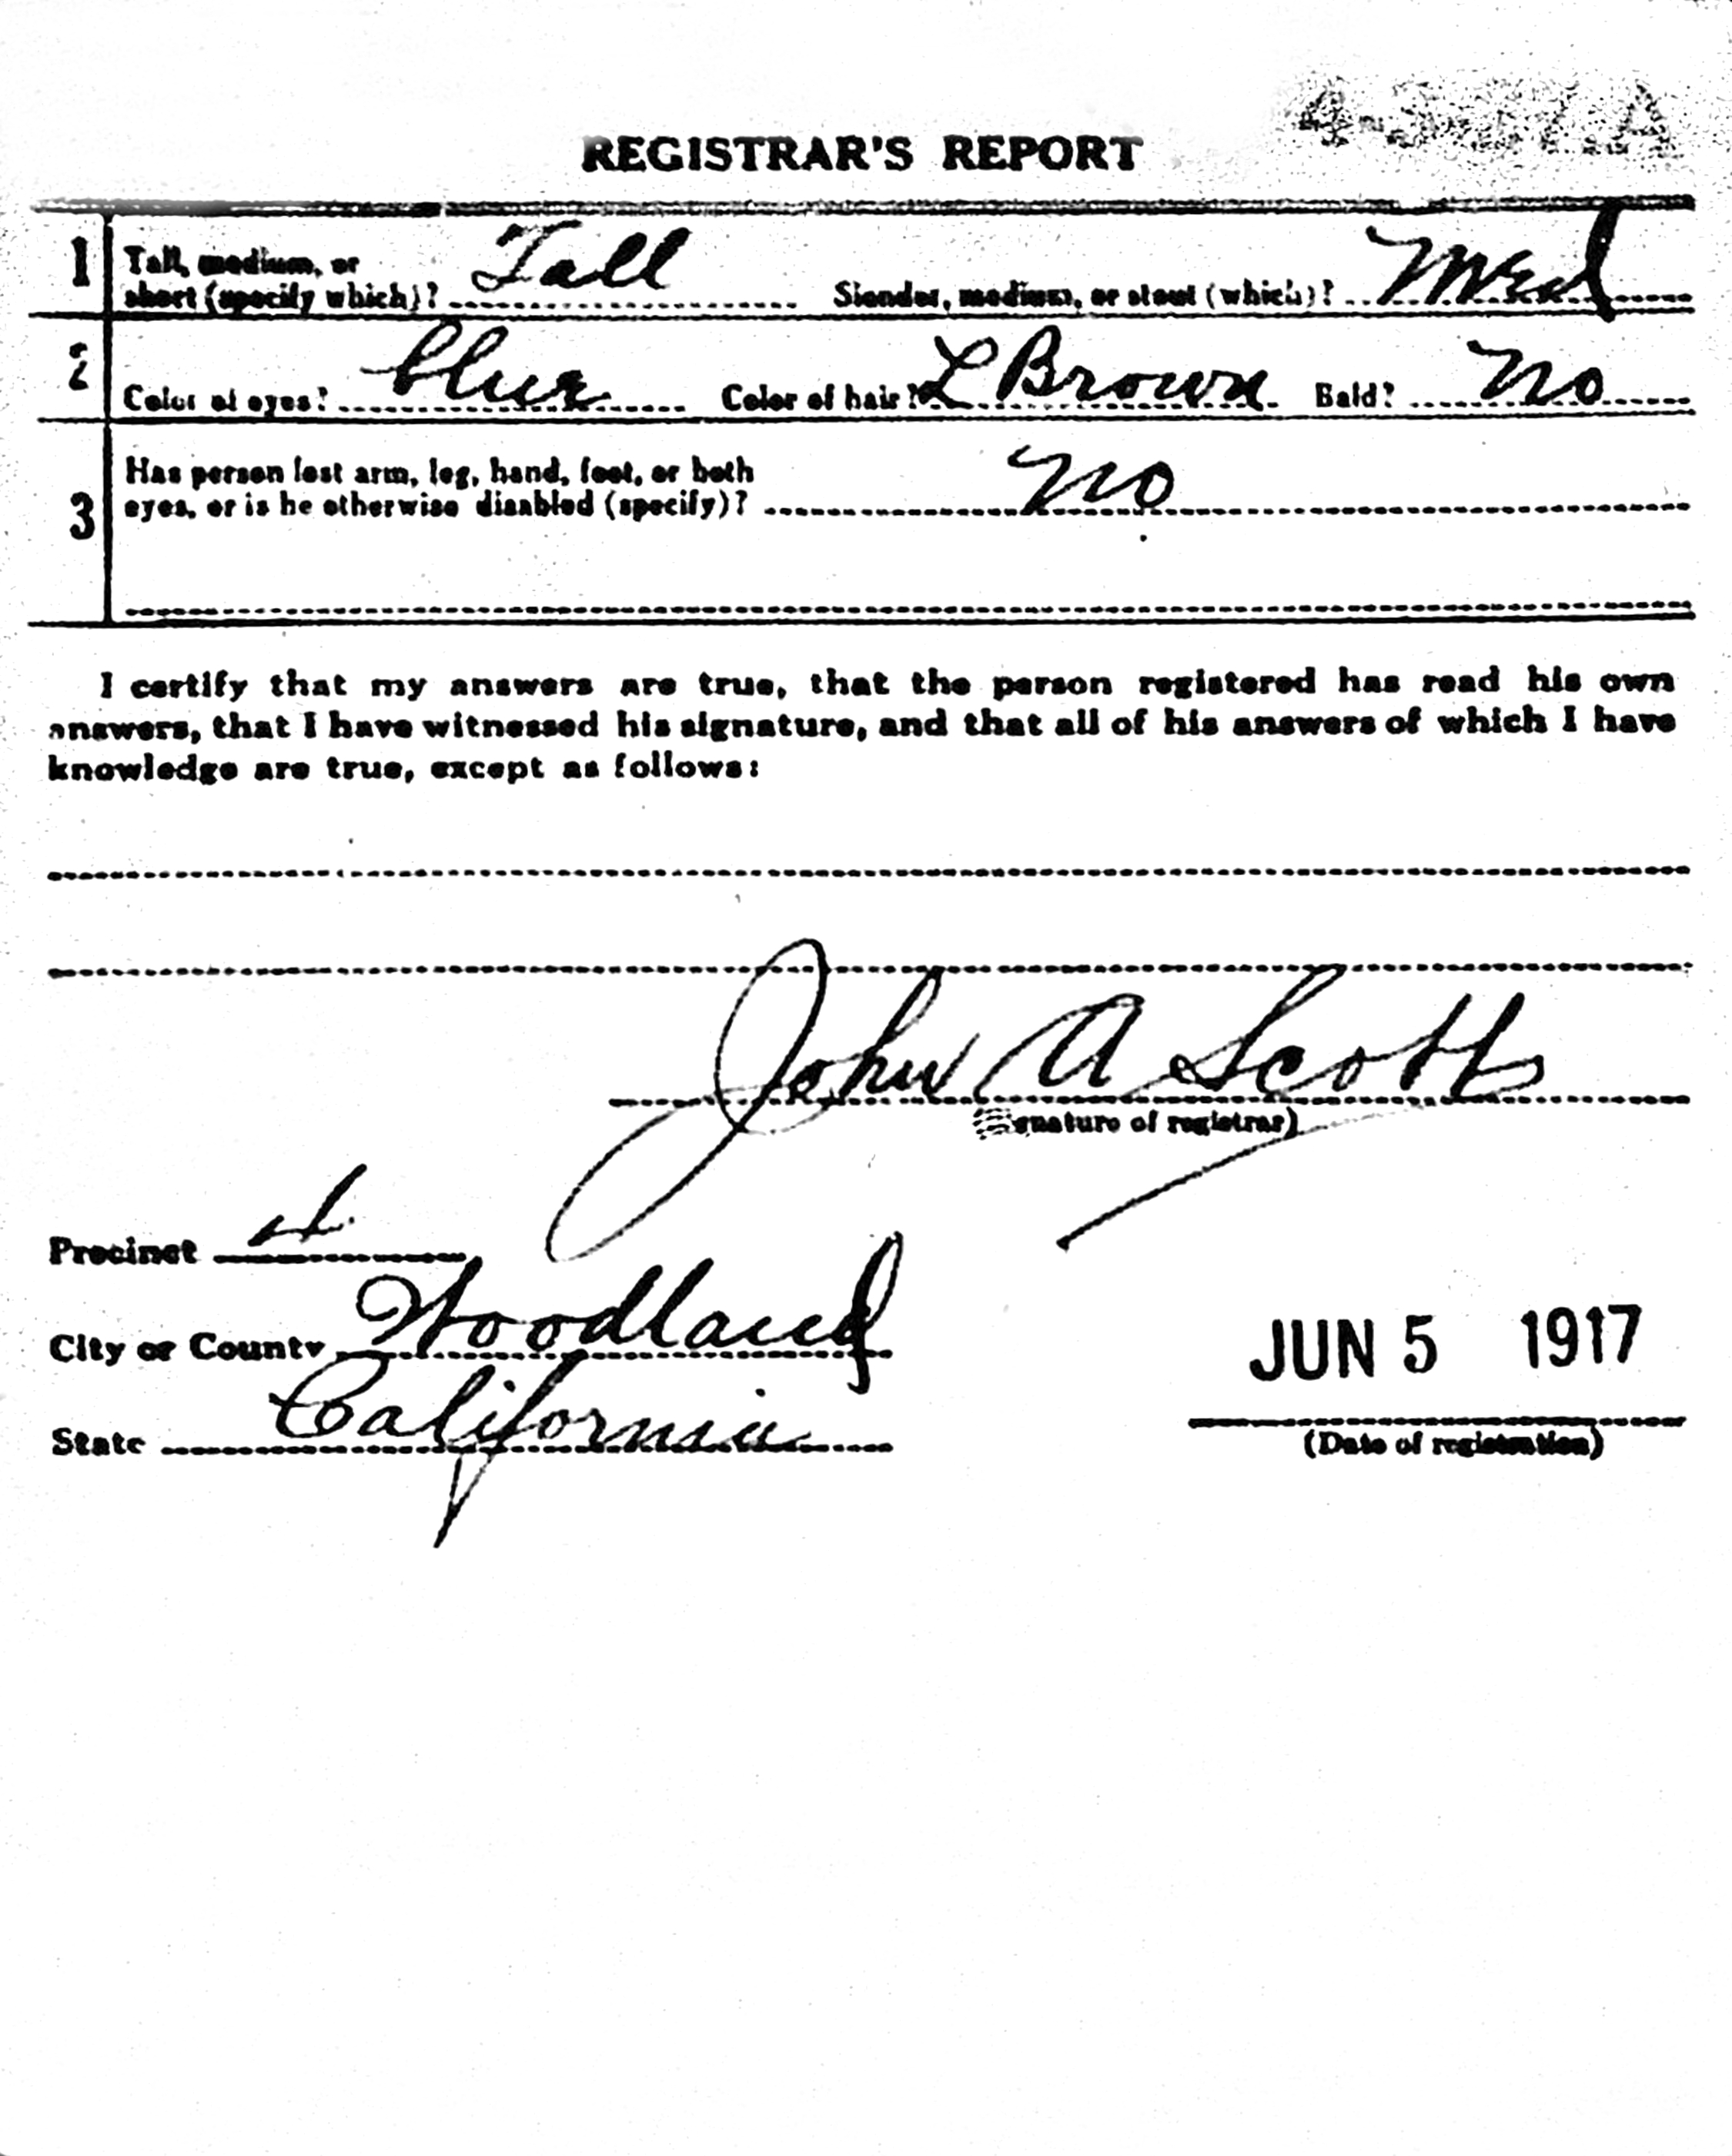 REGISTRAR'S REPORT
1 Tall, medium, or
short (specify which)? Tall Slender, medium, or stout (which)? Med
2 Color of eyes? blue Color of hair? L Brown Bald? No
Has person lost arm, leg, hand, foot, or both
3 eyes, or is he otherwise disabled (specify)? No
I certify that my answers are true, that the person registered has read his own
answers, that I have witnessed his signature, and that all of his answers of which I have
knowledge are true, except as follows:
John A Scott
(Signature of registrar)
Precinct
City or County Woodland
JUN 5 1917
State California
(Date of registration)